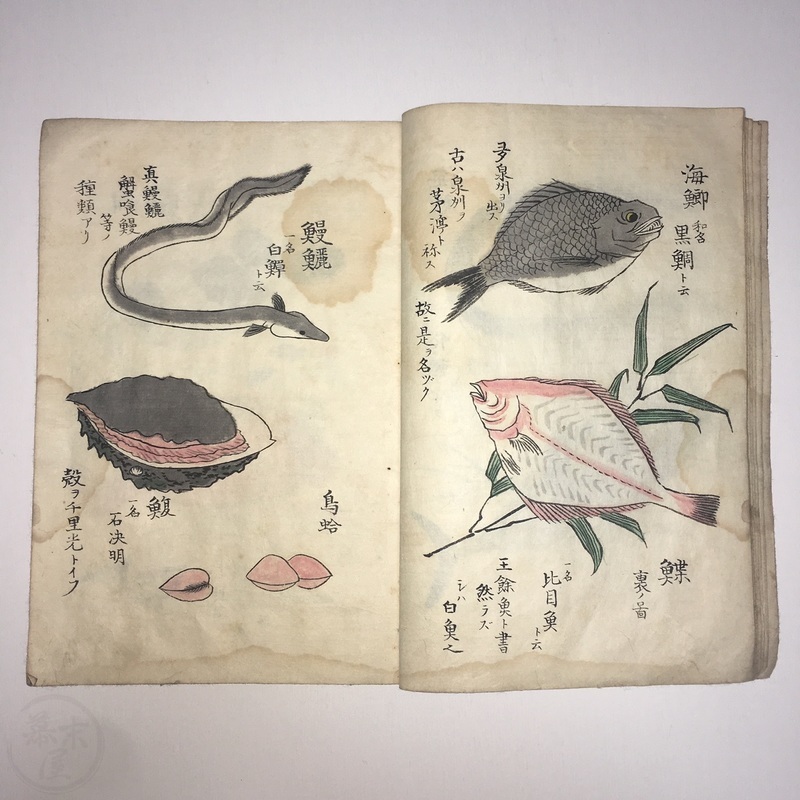 海鯽
和名
黒鯛ト云
多泉州ヨリ出ス
古ハ泉州ヲ
茅渟ト称ス
故ニ是ヲ名ヅク
鰈
裏ノ啚
一名
比目魚ト云
王餘魚ト書
然ラズ
シハ
白魚之
鰻鱺
一名
白鱓ト云
真鰻鱺
蟹喰鰻
等ノ
種類アリ
鰒
一名
石决明
殻ヲ千里光トイフ
鳥蛤